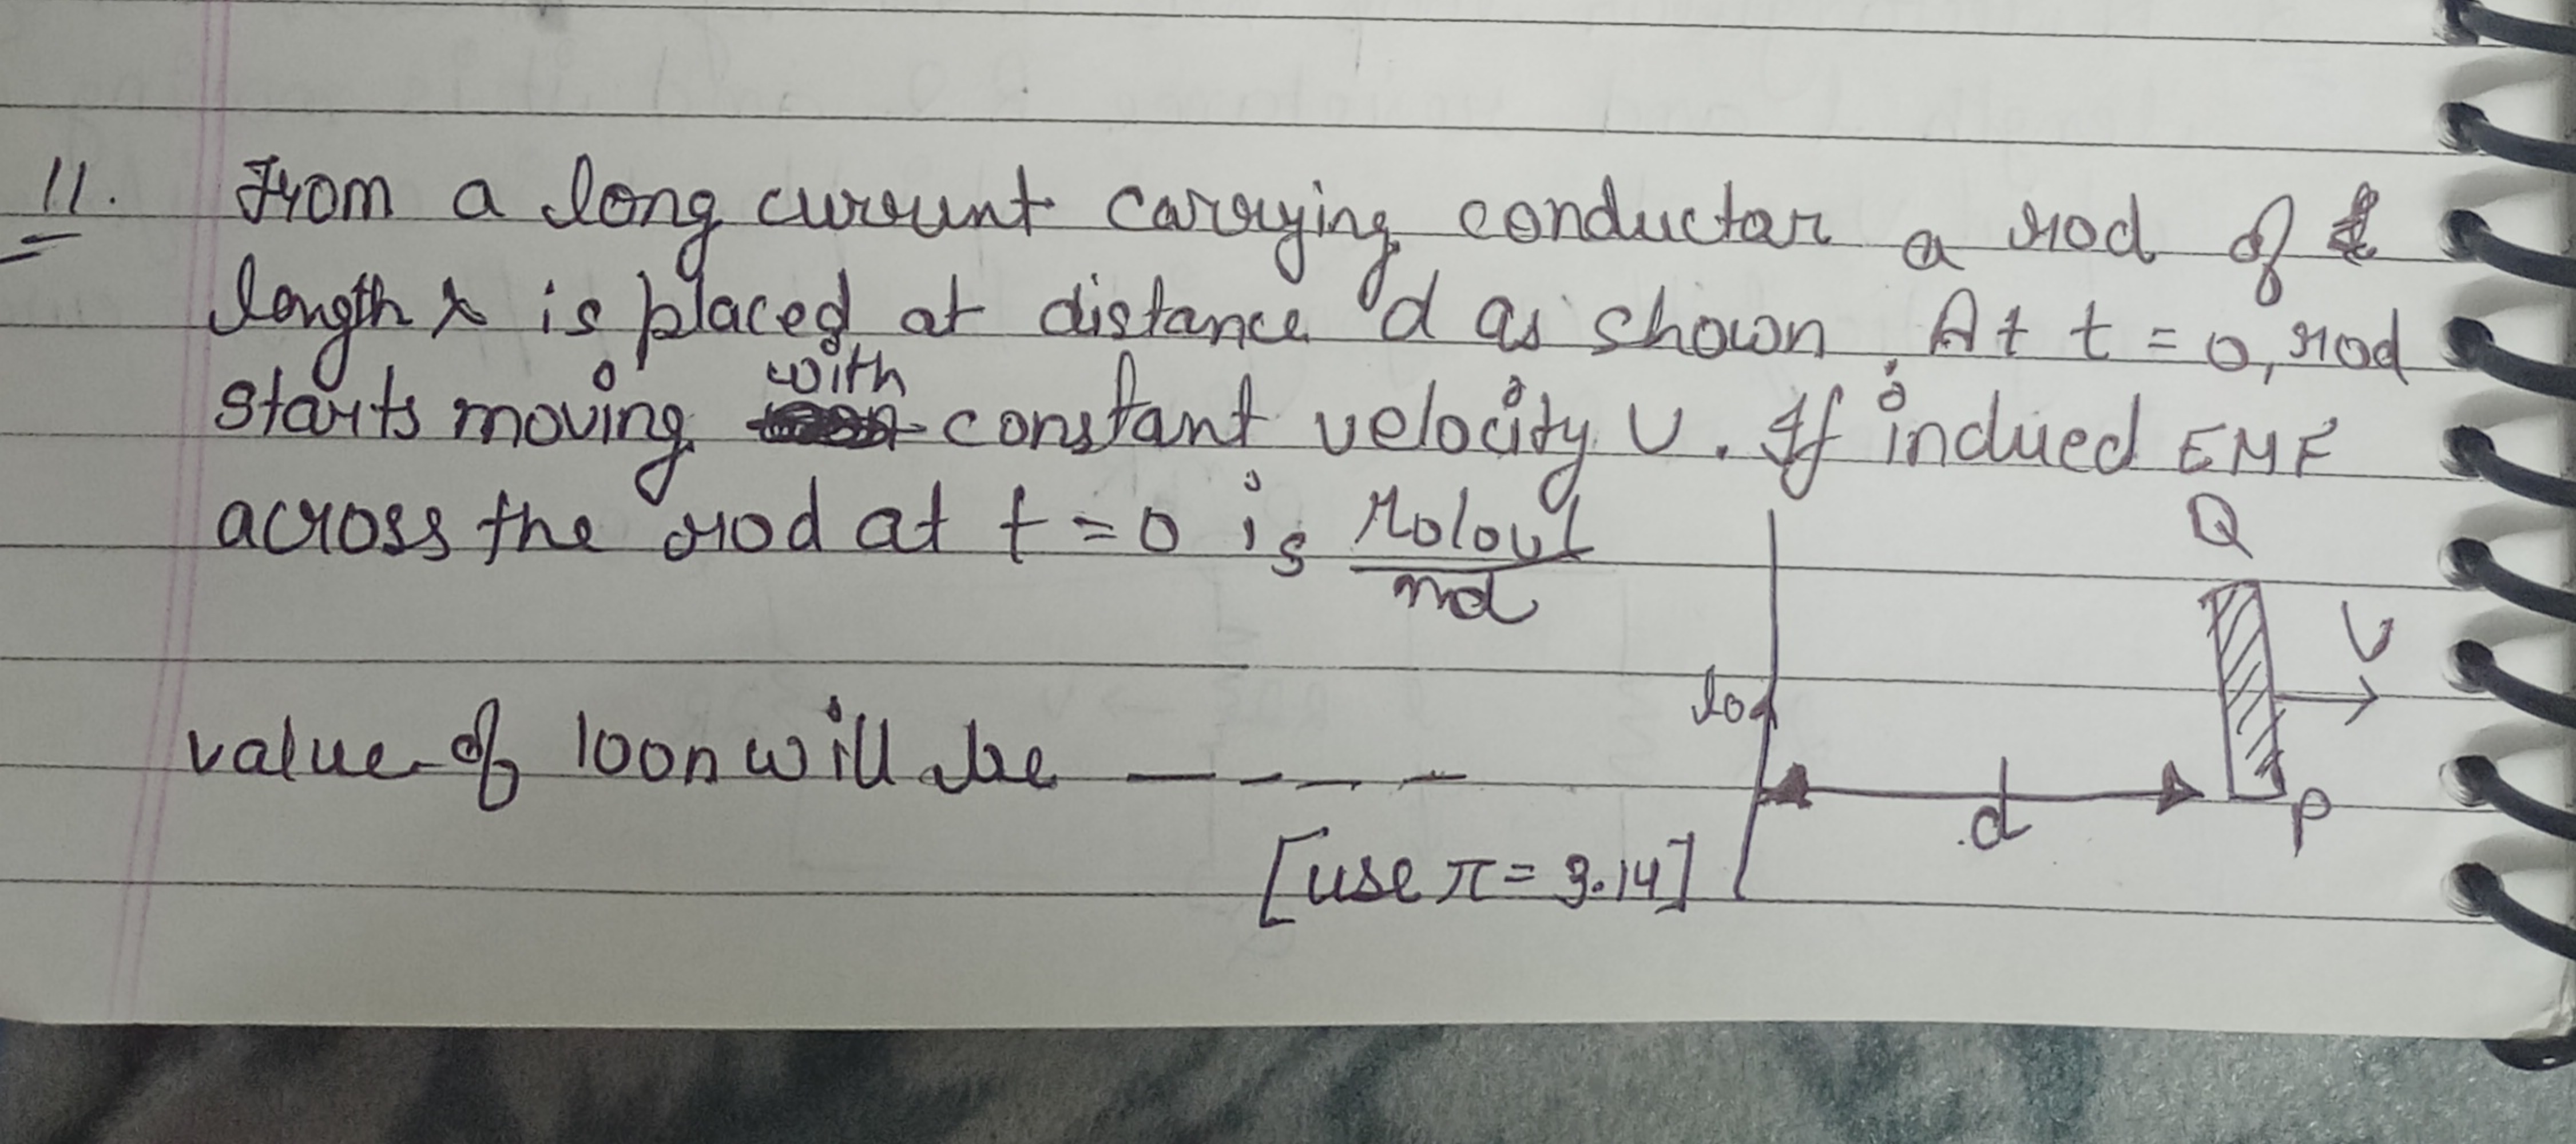 11. From a long current carrying conductor a rod of
length x is placed at distance d as shown. At t = 0, rod
starts moving with constant velocity v. If indued EMF
across the rod at t = 0 is μ₀I₀vl/nd
value of 100n will be _ _ _ _
[use π = 3.14]
Q
v
I₀
d
P